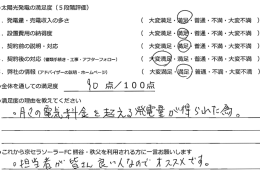 ・太陽光発電の満足度（5段階評価）
・発電量・売電収入の多さ （ 大変満足・満足・普通・不満・大変不満 ）
・設置費用の納得度 （ 大変満足・満足・普通・不満・大変不満 ）
・契約前の説明・対応 （ 大変満足・満足・普通・不満・大変不満 ）
・契約後の対応（書類手続き・工事・アフターフォロー） （ 大変満足・満足・普通・不満・大変不満 ）
・弊社の情報（アドバイザーの説明・ホームページ） （ 大変満足・満足・普通・不満・大変不満 ）
・全体を通しての満足度 90 点／100点
・満足度の理由を教えてください
・月々の電気料金を超える発電量が得られた為。
・これから京セラソーラーFC熊谷・秩父を利用される方に一言お願いします
・担当者が皆さん良い人なのでオススメです。